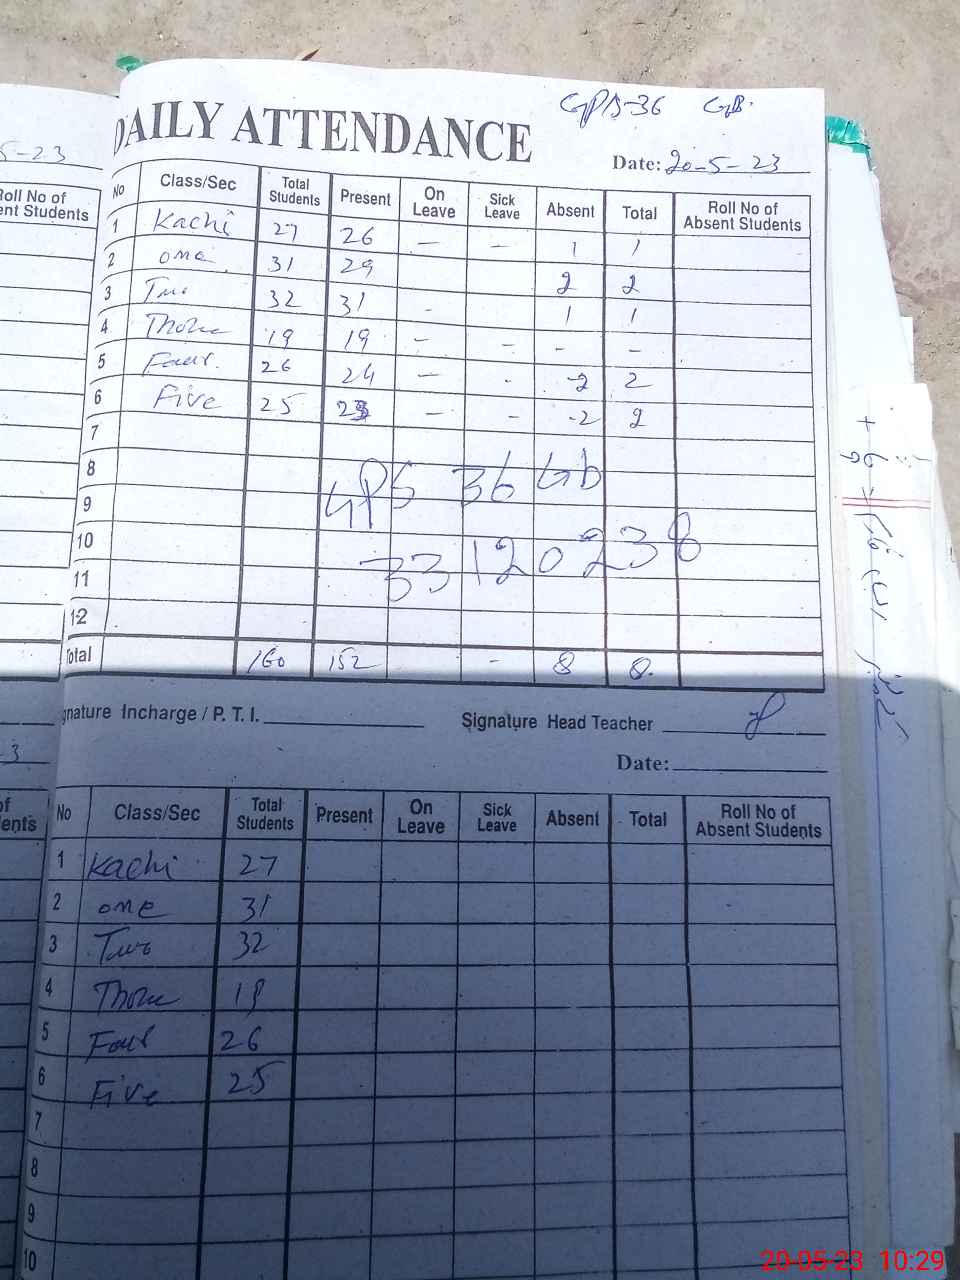 GPS-36 GB
DAILY ATTENDANCE
Date: 20-5-23
No Class/Sec Total Students Present On Leave Sick Leave Absent Total Roll No of Absent Students
1 Kachi 27 26 - - 1 1
2 one 31 29 2 2
3 Two 32 31 - 1 1
4 19 19 - - - -
5 Four 26 24 - - -2 2
6 Five 25 23 - - -2 2
7
8
GPS 36 GB
9
10
33120238
11
12
Total 160 152 - 8 8
gnature Incharge / P. T. I. Signature Head Teacher
Date:
No Class/Sec Total Students Present On Leave Sick Leave Absent Total Roll No of Absent Students
1 Kachi 27
2 one 31
3 Two 32
4 19
5 Four 26
6 Five 25
7
8
9
10
5-23
Roll No of
ent Students
-3
of
ents
20-05-23 10:29